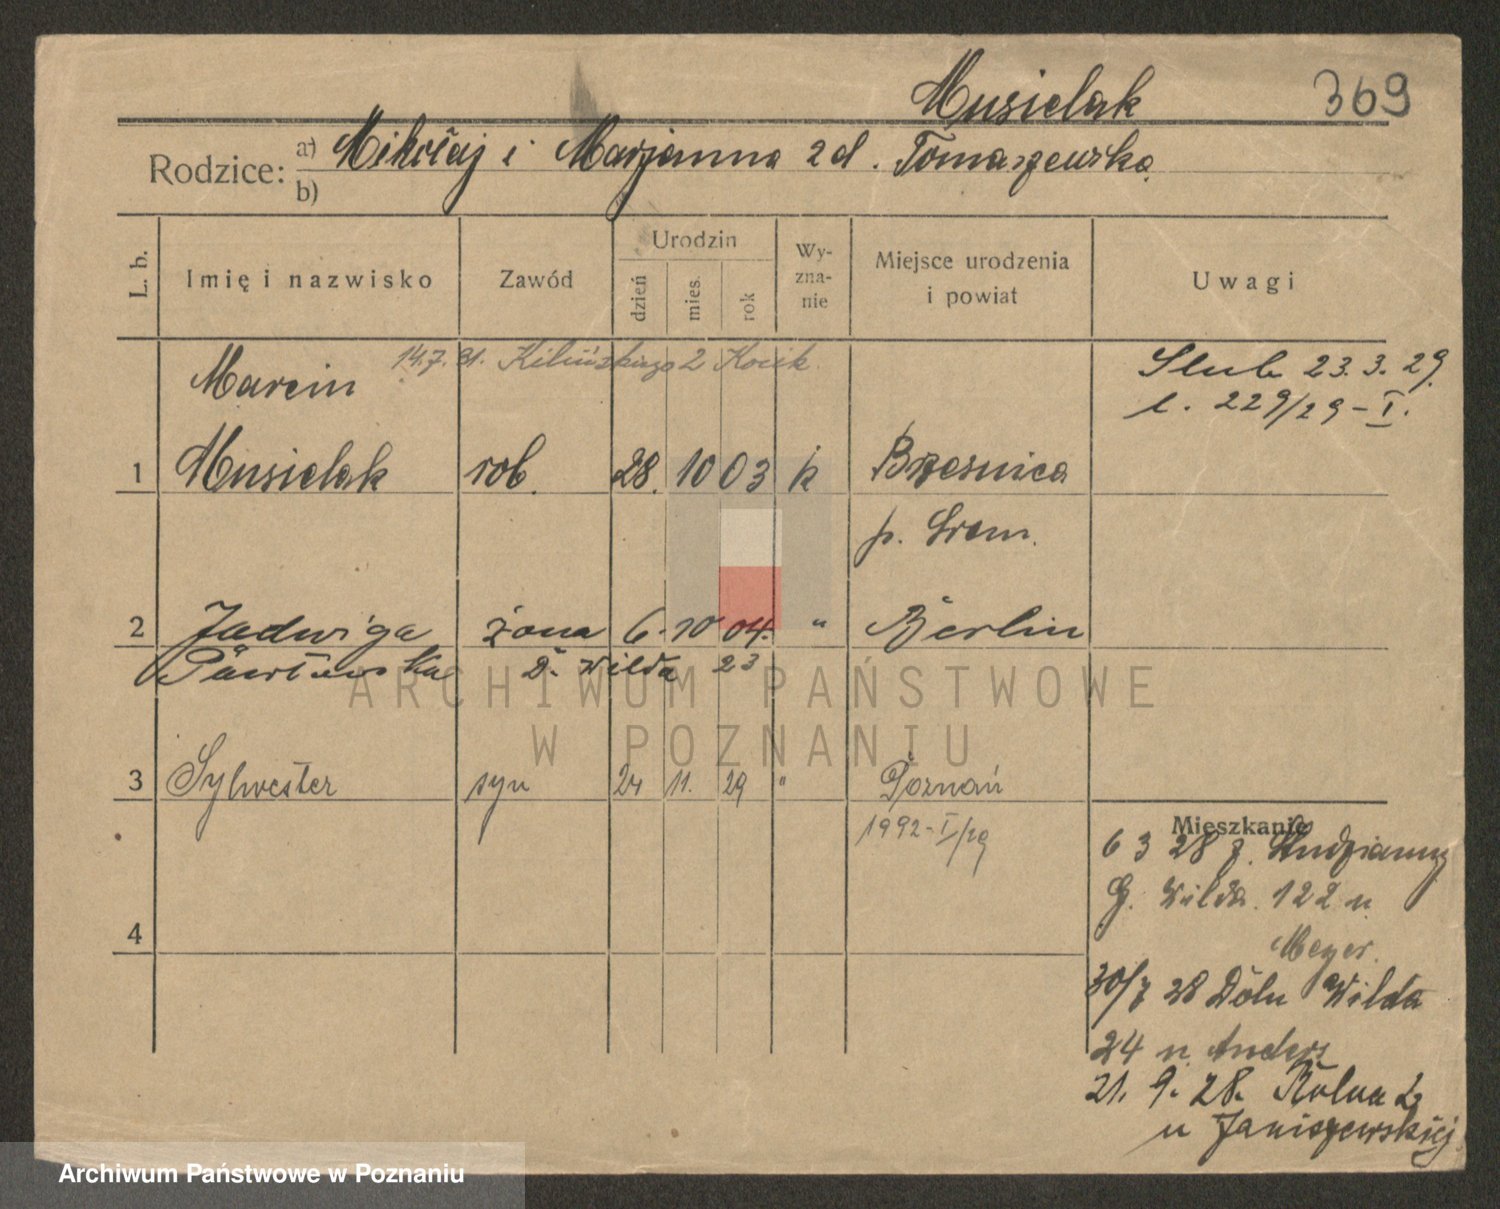 Musielak 369
Rodzice: a) Mikołaj i Marjanna z d. Tomaszewska
b)
L. b. Imię i nazwisko Zawód Urodzin dzień mies. rok Wy-zna-nie Miejsce urodzenia i powiat Uwagi
14.7.31. Kilińskiego 2 Kocik
Marcin Ślub 23.3.29.
l. 229/29-I.
1 Musielak rob. 28. 10 03 k Brzesnica
p. Śrem.
2 Jadwiga żona 6. 10 04. " Berlin
Pawłowska D. Wilda 23
3 Sylwester syn 24 11. 29 " Poznań
1992-I/29
Mieszkanie
6 3 28 z
G. Wilda. 122 u
Meyer.
4
30/7 28 Doln Wilda
24 u. Anders
21. 9. 28. Rolna
u Janiszewskiej
ARCHIWUM PAŃSTWOWE
W POZNANIU
Archiwum Państwowe w Poznaniu